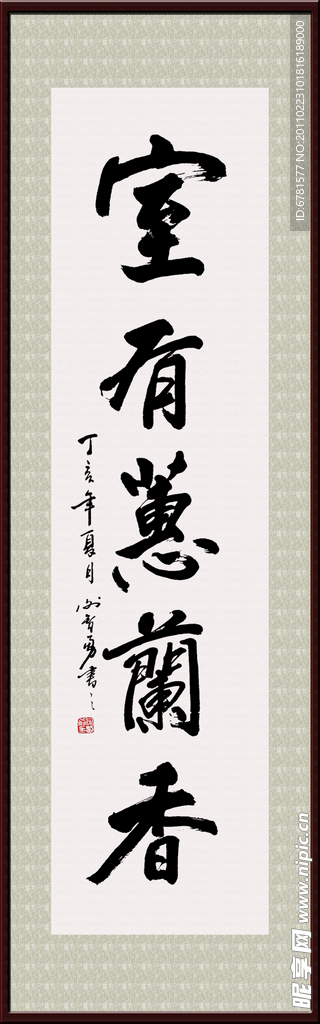 室有蕙蘭香
丁亥年夏月
勇書
ID:6781577 NO:20110223101816189000
昵享网 www.nipic.cn